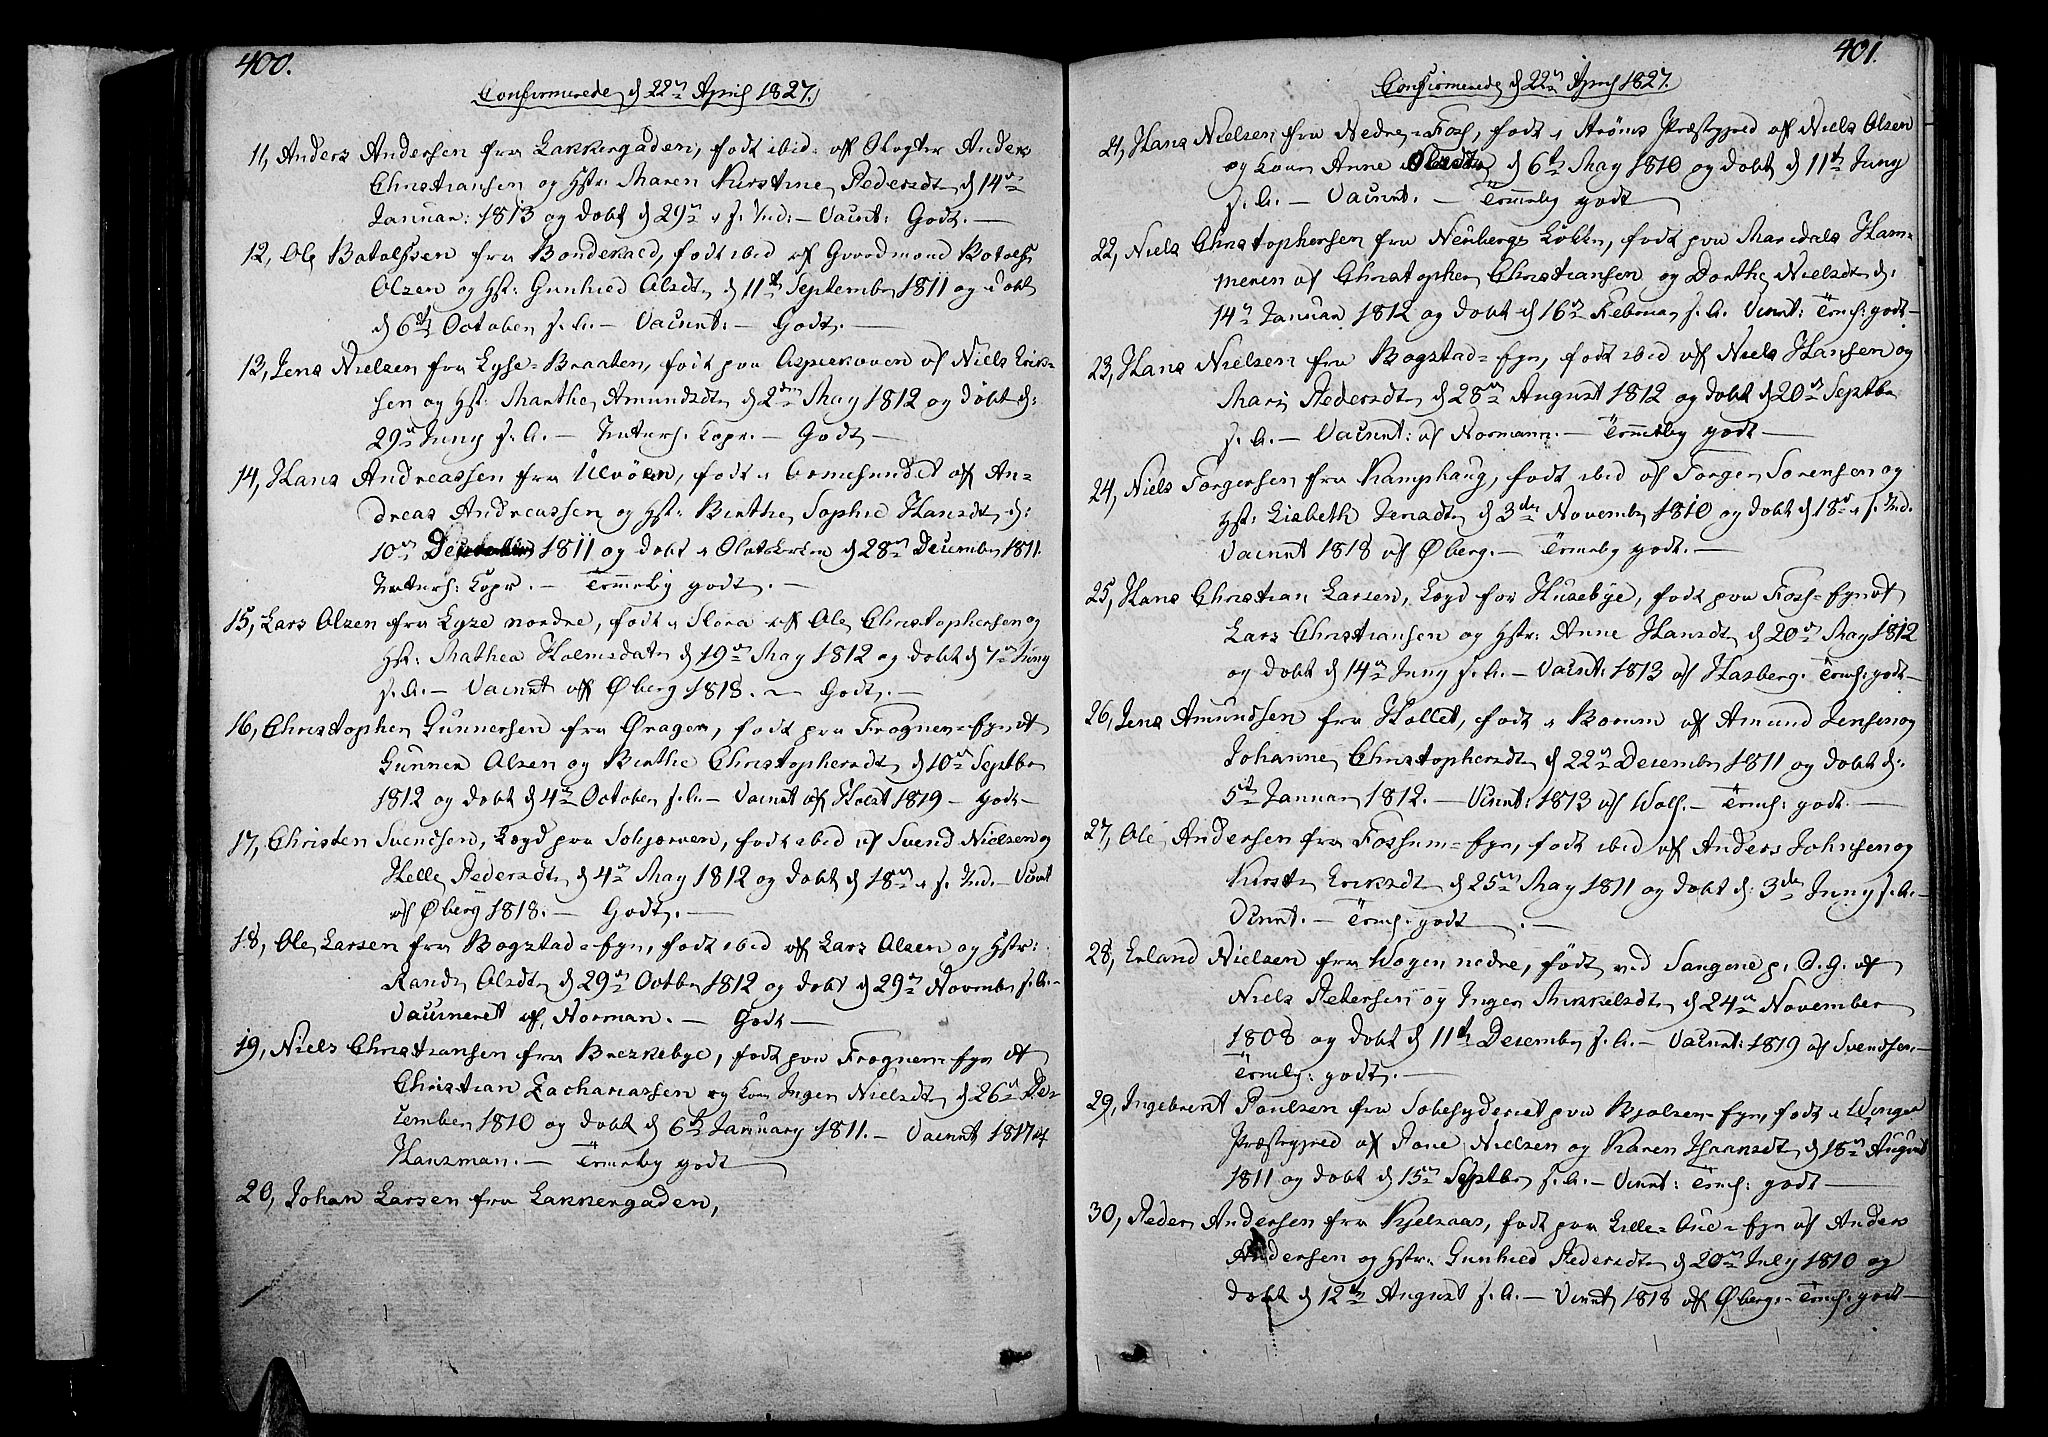 400.
Confirmerede d 22de April 1827.
11, Anders Andersen fra Lakkergaden, født ibid: af Slagter Anders
Christiansen og Hstr: Maren Kirstine Pedersdt d 14de
Januar: 1813 og døbt d 29de s. Md: - Vacint: Godt. -
12, Ole Botolfsen fra Bonderæed, født ibid af Gaardmand Botolf
Olsen og Hst: Gunhild Olsdt d 11te September 1811 og døbt
d 6te October s. A. - Vacinnt. - Godt. -
13, Jens Nielsen fra Lyse-Braaten, født paa Aspeskoven af Niels Erik-
sen og Hst: Marthe Amundsdt d 2den May 1812 og døbt d:
29de Juny s. A. - Naturl. Kopr. - Godt -
14, Hans Andreassen fra Ulvöen, født i Ormesundet af An-
dreas Andreassen og Hst: Birthe Sophie Hansdt d:
10de 1811 og døbt i Oloskirken d 28de December 1811.
Naturl: Kopr. - Temmelig godt. -
15, Lars Olsen fra Lyse nordre, født i Slora af Ole Christophersen og
Hst: Mathea Holmsdatr d 19de May 1812 og døbt d 7de Juny
s. A. - Vacinnt af Øberg 1818. - Godt. -
16, Christopher Gunnersen fra Øragen, født paa Frogner-Eyn af
Gunner Olsen og Birthe Christophersdt d 10de Septbr
1812 og døbt d 4de October s. A. - Vacinnt af Holst 1819 - godt -
17, Christen Svendsen, Logd paa Sohjørnen, født ibid af Svend Nielsen og
Helle Pedersdt d 4de May 1812 og døbt d 18de s. Md. - Vacint
af Øberg 1818. - Godt. -
18, Ole Larsen fra Bogstad-Eyn, født ibid af Lars Olsen og Hstr:
Randi Olsdt d 29de Octbr 1812 og døbt d 29de Novembr s. A. -
Vacineret af Norman. - Godt -
19, Niels Christiansen fra Brekkebye, født paa Frogner-Eyn af
Christian Zachariassen og Kone Inger Nielsdt d 26de De-
cember 1810 og døbt d 6te January 1811. - Vacinnt 1817 af
Hansman. - Temmelig godt -
20, Johan Larsen fra Lakkergaden,
401.
Confirmerede d 22de April 1827.
21, Hans Nielsen fra Nedre-Foss, født i Strøms Præstegjeld af Niels Olsen
og Kone Anne Olsdtr d 6te May 1810 og døbt d 11te Juny
s. A. - Vacinnt. - Temmelig godt -
22, Niels Christophersen fra Neubergs Løkken, født paa Maridals Ham-
meren af Christopher Christiansen og Dorthe Nielsdt d:
14de Januar 1812 og døbt d 16de Februar s. A. Vacint: Teml: godt -
23, Hans Nielsen fra Bogstad-Eyn, født ibid af Niels Hansen og
Mari Pedersdt d 28de August 1812 og døbt d 20de Septbr
s. A. - Vacinnt: af Normann. - Temmelig godt -
24, Niels Torgersen fra Kamphaug, født ibid af Torger Sørensen og
Hst: Lisbeth Jensdt d 3die November 1810 og døbt d 18de s. Md.
Vacinnt 1818 af Øberg. - Temmelig godt. -
25, Hans Christian Larsen, Logd fra Husebye, født paa Foss-Eyn af
Lars Christiansen og Hstr: Anne Hansdt d 20de May 1812
og døbt d 14de Juny s. A. - Vacint: 1813 af Hasberg. Teml: godt -
26, Jens Amundsen fra Hollet, født i Bærum af Amund Jensen og
Johanne Christophersdt d 22de Decembr 1811 og døbt d:
5te Januar 1812. - Vacint: 1813 af Wolf. - Teml: godt. -
27, Ole Andersen fra Fossum-Eyn, født ibid af Anders Johnsen og
Kirsti Eriksdt d 25de May 1811 og døbt d: 3die Juny s. A. -
Vacint. - Teml: godt. -
28, Erland Nielsen fra Wogen nedre, født ved Sangene p: S. G. af
Niels Petersen og Inger Mikkelsdt d 24de November
1808 og døbt d 11te Decembr s. A. - Vacint: 1819 af Svendsen. -
Teml: godt. -
29, Ingebret Poulsen fra paa Bjølsen-Eyn, født i Winger
Præstegjeld af Poul Nielsen og Karen Hansdt d 18de August
1811 og døbt d 15de Septbr s. A. - Vacint: Teml: godt -
30, Peder Andersen fra Kjelsaas, født paa Lille-Aue-Eyn af Anders
Andersen og Hstr: Gunhild Pedersdt d 20de July 1810 og
døbt d 12te August s. A. - Vacint 1818 af Øberg. - Teml: godt -